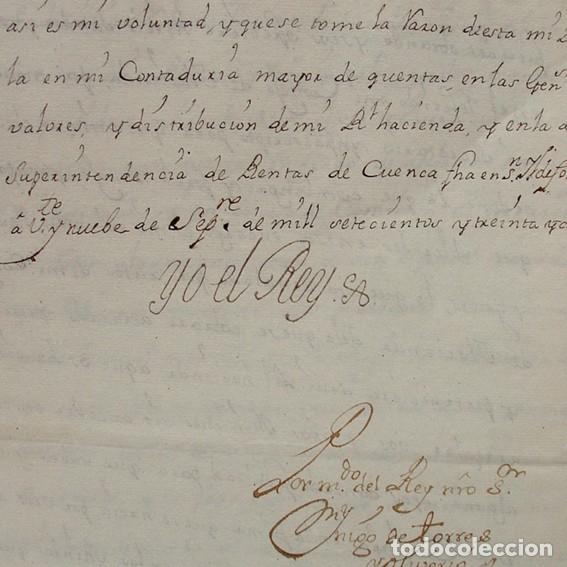 así es mi voluntad, y que se tome la Razon desta mi
la en mi Contaduria mayor de quentas, en las Gen.s
valores, y distribución de mi R.l hacienda, y en la
Superintendencia de Rentas de Cuenca fha en S.n Ildefo.
â V.te y nuebe de Sep.re de mill setecientos y treinta y
Yo el Rey.
Por m.do del Rey nrō S.or
Yñigo de Torres
y Oliverio
todocoleccion